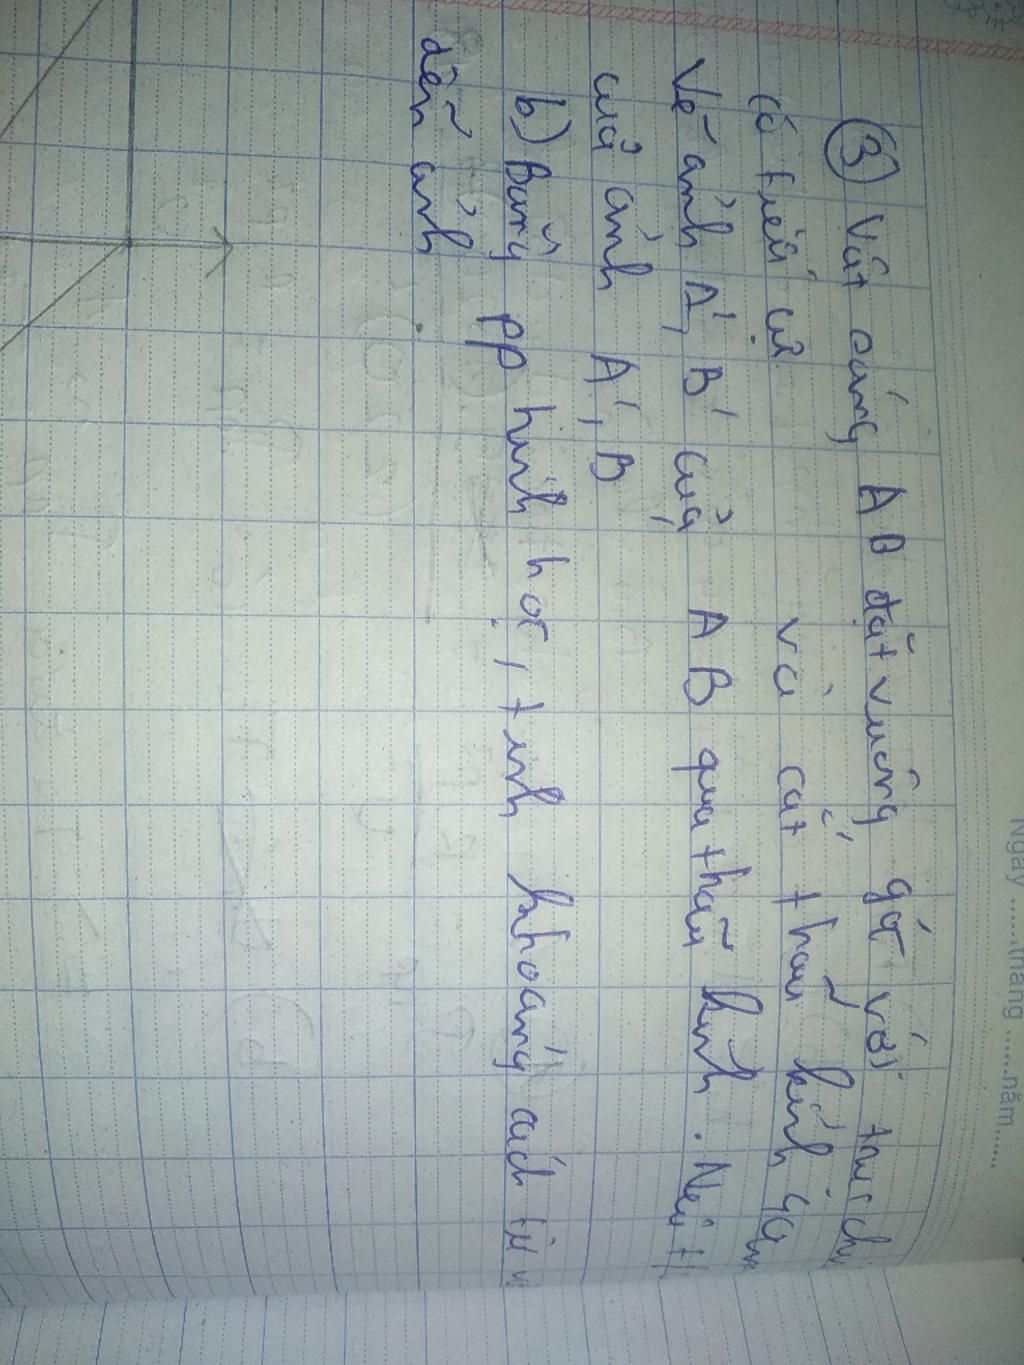 Ngày ..... tháng ..... năm .....
③ Vật sáng AB đặt vuông góc với trục
có tiêu cự và cắt thấu kính
Vẽ ảnh A', B' của AB qua thấu kính. Nêu
của ảnh A', B
b) Bằng pp hình học, tính khoảng cách từ
đến ảnh